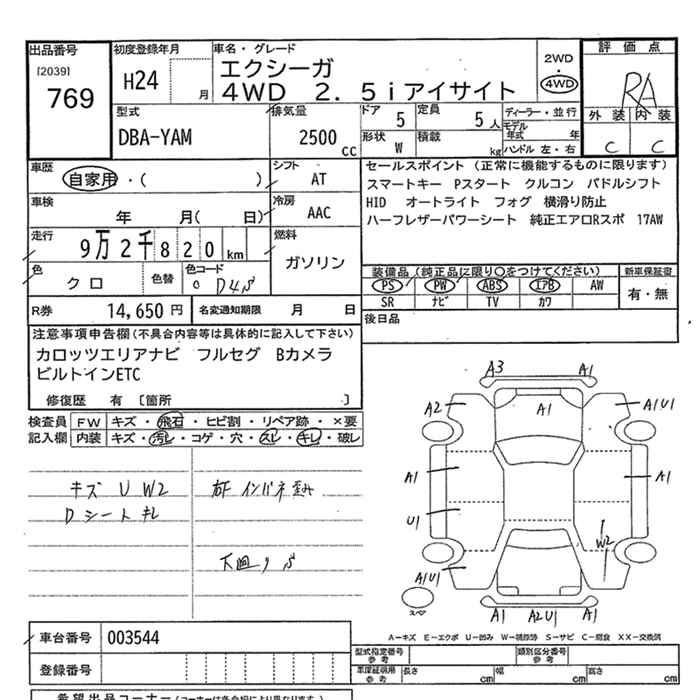 出品番号 初度登録年月 車名・グレード 2WD・4WD 評価点
[2039]
769 H24 月 エクシーガ RA
4WD 2.5iアイサイト
外装 内装
C C
型式 排気量 ドア 定員 ディーラー・並行
DBA-YAM 2500cc 5 5人 モデル年式 年
形状 積載 ハンドル 左・右
W kg
車歴 シフト セールスポイント (正常に機能するものに限ります)
自家用・( ) AT スマートキー Pスタート クルコン パドルシフト
車検 冷房 HID オートライト フォグ 横滑り防止
年 月( 日) AAC ハーフレザーパワーシート 純正エアロRスポ 17AW
走行 燃料
9万2千820km ガソリン
色 色替 色コード 装備品(純正品に限り○をつけてください) 新車保証書
クロ D4S PS PW ABS エアB AW 有・無
SR ナビ TV カワ
R券 14,650円 名変通知期限 月 日 後日品
注意事項申告欄(不具合内容等は具体的に記入して下さい)
カロッツエリアナビ フルセグ Bカメラ
ビルトインETC
修復歴 有 [箇所 ]
検査員 FW キズ・飛石・ヒビ割・リペア跡・×要
記入欄 内装 キズ・汚レ・コゲ・穴・スレ・キレ・破レ
キズ U W2 右F インパネ歪み
Dシートキレ
下廻りS
A3 A1
A2 A1 A1U1
A1 A1
U1 W2
A1U1
スペア A1 A2U1 A1
A-キズ E-エクボ U-凹み W-補修跡 S-サビ C-腐食 XX-交換済
車台番号 003544
型式指定番号 参考 類別区分番号 参考
登録番号 車庫証明用 参考 長さ cm 幅 cm 高さ cm
希望出品コーナー